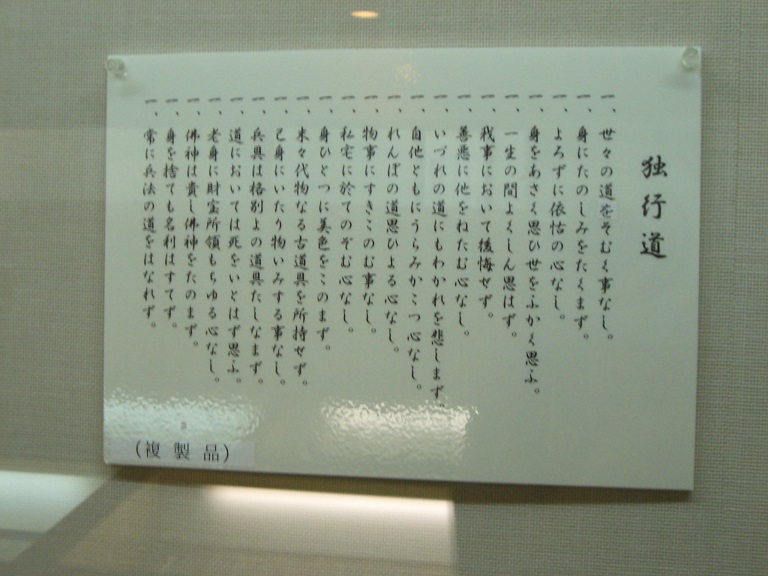 独行道
一、世々の道をそむく事なし。
一、身にたのしみをたくまず。
一、よろずに依怙の心なし。
一、身をあさく思ひ世をふかく思ふ。
一、一生の間よくしん思はず。
一、我事において後悔せず。
一、善悪に他をねたむ心なし。
一、いづれの道にもわかれを悲しまず。
一、自他ともにうらみかこつ心なし。
一、れんぼの道思ひよる心なし。
一、物事にすきこのむ事なし。
一、私宅に於てのぞむ心なし。
一、身ひとつに美色をこのまず。
一、末々代物なる古道具を所持せず。
一、己身にいたり物いみする事なし。
一、兵具は格別よの道具たしなまず。
一、道においては死をいとはず思ふ。
一、老身に財宝所領もちゆる心なし。
一、佛神は貴し佛神をたのまず。
一、身を捨ても名利はすてず。
一、常に兵法の道をはなれず。
（複製品）